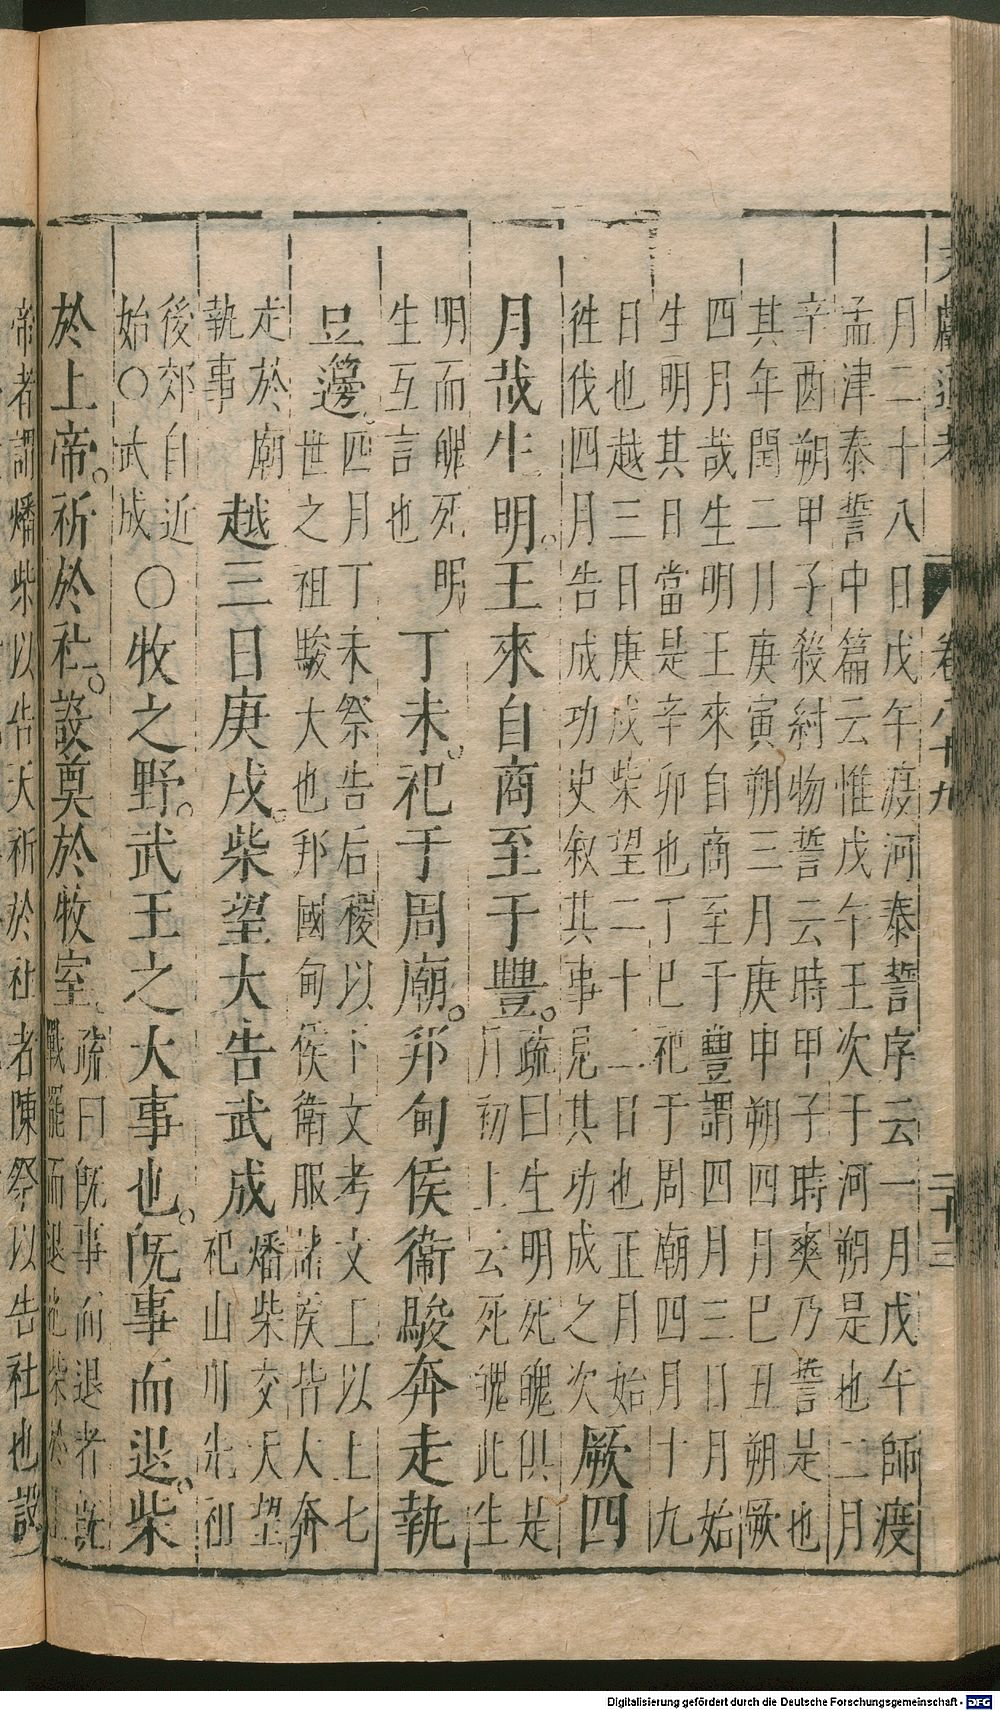 月二十八日戊午渡河泰誓序云一月戊午師渡
孟津泰誓中篇云惟戊午王次于河朔是也二月
辛酉朔甲子殺紂物誓云時甲子時爽乃誓是也
其年閏二月庚寅朔三月庚申朔四月巳丑朔厥
四月哉生明王來自商至于豐謂四月三日月始
生明其日當是辛卯也丁巳祀于周廟四月十九
日也越三日庚戌柴望二十二日也正月始
徃伐四月告成功史叙其事見其功成之次
厥四
月哉生明王來自商至于豐
疏曰生明死魄俱是
月初上云死魄此生
明而魄死明
生互言也
丁未祀于周廟邦甸侯衞駿奔走執
豆籩
四月丁未祭告后稷以下文考文王以上七
世之祖駿大也邦國甸侯衛服諸侯皆大奔
走於廟
執事
越三日庚戌柴望大告武成
燔柴交天望
祀山川先祖
後郊自近
始○武成
○牧之野武王之大事也旣事而退柴
於上帝祈於社設奠於牧室
疏曰旣事而退者旣
戰罷而退也柴於上
帝者謂燔柴以告天祈於社者陳祭以告社也設
卷八十九
二十三
Digitalisierung gefördert durch die Deutsche Forschungsgemeinschaft - DFG